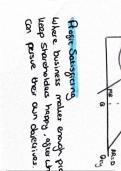 Profit Satisficing
Where business makes enough pro
keep shareholders happy, after wh
can persue their own objectives.
AR=D
Qty